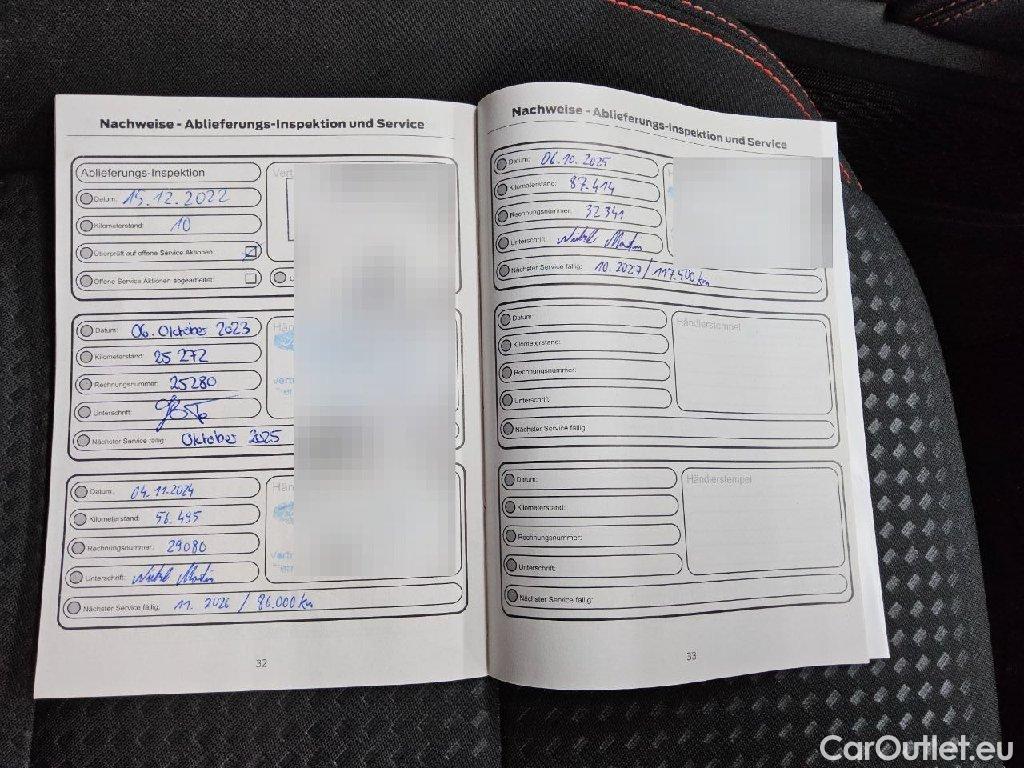 Nachweise - Ablieferungs-Inspektion und Service
Ablieferungs-Inspektion
Datum: 15.12.2022
Kilometerstand: 10
Überprüft auf offene Service Aktionen
Offene Service Aktionen abgearbeitet
Datum: 06. Oktober 2023
Kilometerstand: 25 272
Rechnungsnummer: 25280
Unterschrift:
Nächster Service fällig: Oktober 2025
Datum: 04.11.2024
Kilometerstand: 56.495
Rechnungsnummer: 29080
Unterschrift:
Nächster Service fällig: 11. 2026 / 86.000 km
32
Nachweise - Ablieferungs-Inspektion und Service
Datum: 06.10.2025
Kilometerstand: 87.414
Rechnungsnummer: 32341
Unterschrift:
Nächster Service fällig: 10.2027 / 117.400 km
Datum:
Händlerstempel
Kilometerstand:
Rechnungsnummer:
Unterschrift:
Nächster Service fällig:
Datum:
Händlerstempel
Kilometerstand:
Rechnungsnummer:
Unterschrift:
Nächster Service fällig:
33
CarOutlet.eu